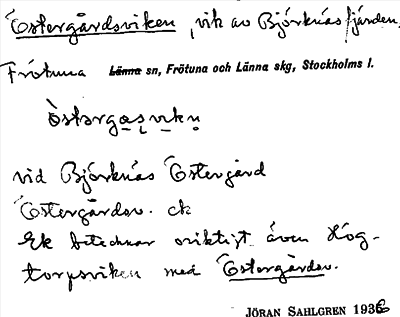 Östergårdsviken, vik av Björknäsfjärden.
Frötuna Länna sn, Frötuna och Länna skg, Stockholms l.
östərgas̱vikn
vid Björknäs Östergård
Östergårdsv. ek
Ek betecknar oriktigt även Hög-
torpsviken med Östergårdsv.
JÖRAN SAHLGREN 1936